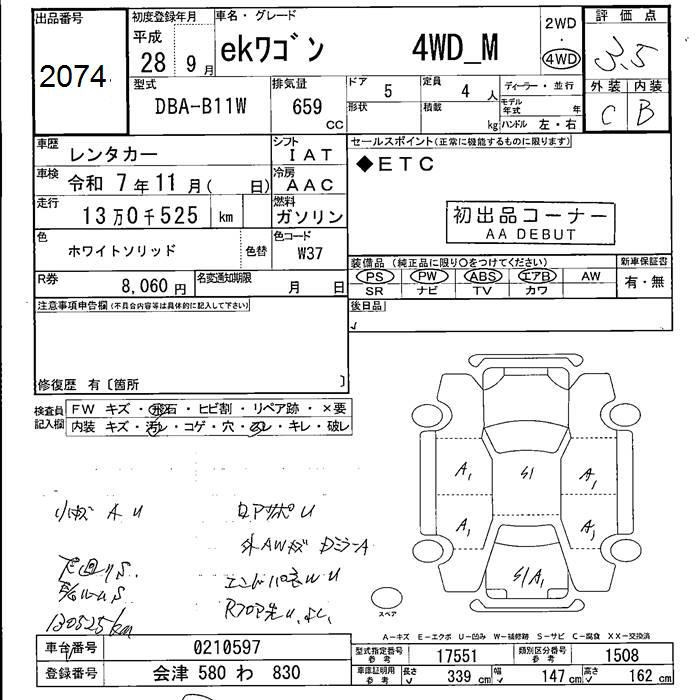 出品番号
2074
初度登録年月
平成
28年 9月
車名・グレード
ekワゴン 4WD_M
2WD
・
4WD
評価点
3.5
外装 内装
C B
型式
DBA-B11W
排気量
659
CC
ドア
5
定員
4 人
形状
積載
kg
ディーラー・並行
モデル年式 年
ハンドル 左・右
車歴
レンタカー
シフト
IAT
車検
令和 7年11月( 日)
冷房
AAC
走行
13万0千525 km
燃料
ガソリン
色
ホワイトソリッド
色替
色コード
W37
R券
8,060円
名変通知期限
月 日
セールスポイント(正常に機能するものに限ります)
◆ETC
初出品コーナー
AA DEBUT
装備品(純正品に限り○をつけてください)
PS PW ABS エアB AW
SR ナビ TV カワ
新車保証書
有・無
後日品
注意事項申告欄(不具合内容等は具体的に記入して下さい)
修復歴 有〔箇所 〕
検査員記入欄
FW キズ・飛石・ヒビ割・リペア跡・×要
内装 キズ・汚レ・コゲ・穴・スレ・キレ・破レ
小キズ A U
ロアサポ U
外AWキズ DミラーA
エンドパネW U
130525km
A1 S1 A1
A1 A1
S1A1
スペア
A-キズ E-エクボ U-凹み W-補修跡 S-サビ C-腐食 XX-交換済
車台番号
0210597
登録番号
会津 580 わ 830
型式指定番号
参考
17551
類別区分番号
参考
1508
車庫証明用
参考
長さ
339 cm
幅
147 cm
高さ
162 cm